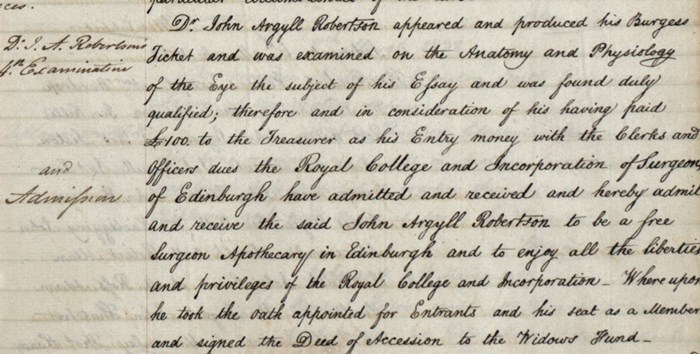 Dr. John Argyll Robertson appeared and produced his Burgess
Dr. J. A. Robertson's
Ticket and was examined on the Anatomy and Physiology
4th Examination
of the Eye the subject of his Essay and was found duly
qualified; therefore and in consideration of his having paid
£100. to the Treasurer as his Entry money with the Clerks and
and
Officers dues the Royal College and Incorporation of Surgeons
Admission
of Edinburgh have admitted and received and hereby admit
and receive the said John Argyll Robertson to be a free
Surgeon Apothecary in Edinburgh and to enjoy all the liberties
and privileges of the Royal College and Incorporation_ Where upon
he took the oath appointed for Entrants and his seat as a Member
and signed the Deed of Accession to the Widows Fund_